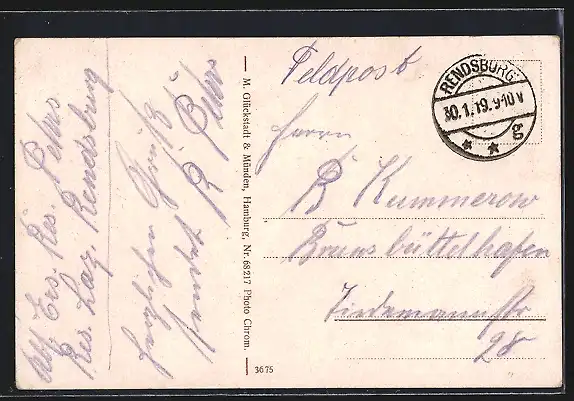 Abs. Ers. Res. Pehrs
Res. Laz. Rendsburg
Herzlichen Gruß
sendet R Pehrs
M. Glückstadt & Münden, Hamburg, Nr. 68217 Photo Chrom.
3675
Feldpost
RENDSBURG
30.1.19.9-10V
g
* *
Herrn
R Kummerow
Brunsbüttelhafen
Tiedemannstr
28